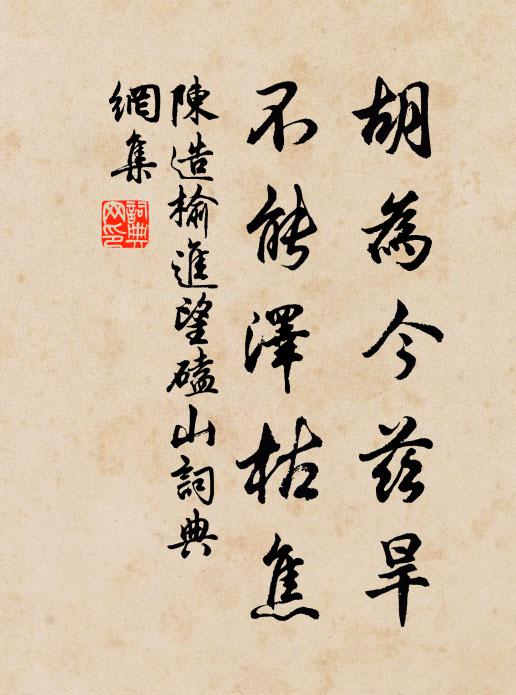 胡為今茲旱
不能澤枯焦
陳造榆進望磕山詞典
網集
詞典
网印